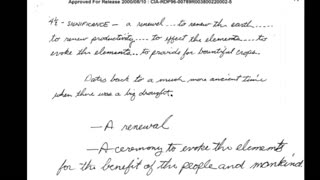 Approved For Release 2000/08/10 : CIA-RDP96-00789R003800220002-5
SIGNIFICANCE - a renewal... to renew the earth.....
to renew productivity.... to effect the elements.... to
evoke the elements... to provide for bountiful crops.
Dates back to a much more ancient time
when there was a big draught.
- A renewal
- A ceremony to evoke the elements
for the benefit of the people and mankind